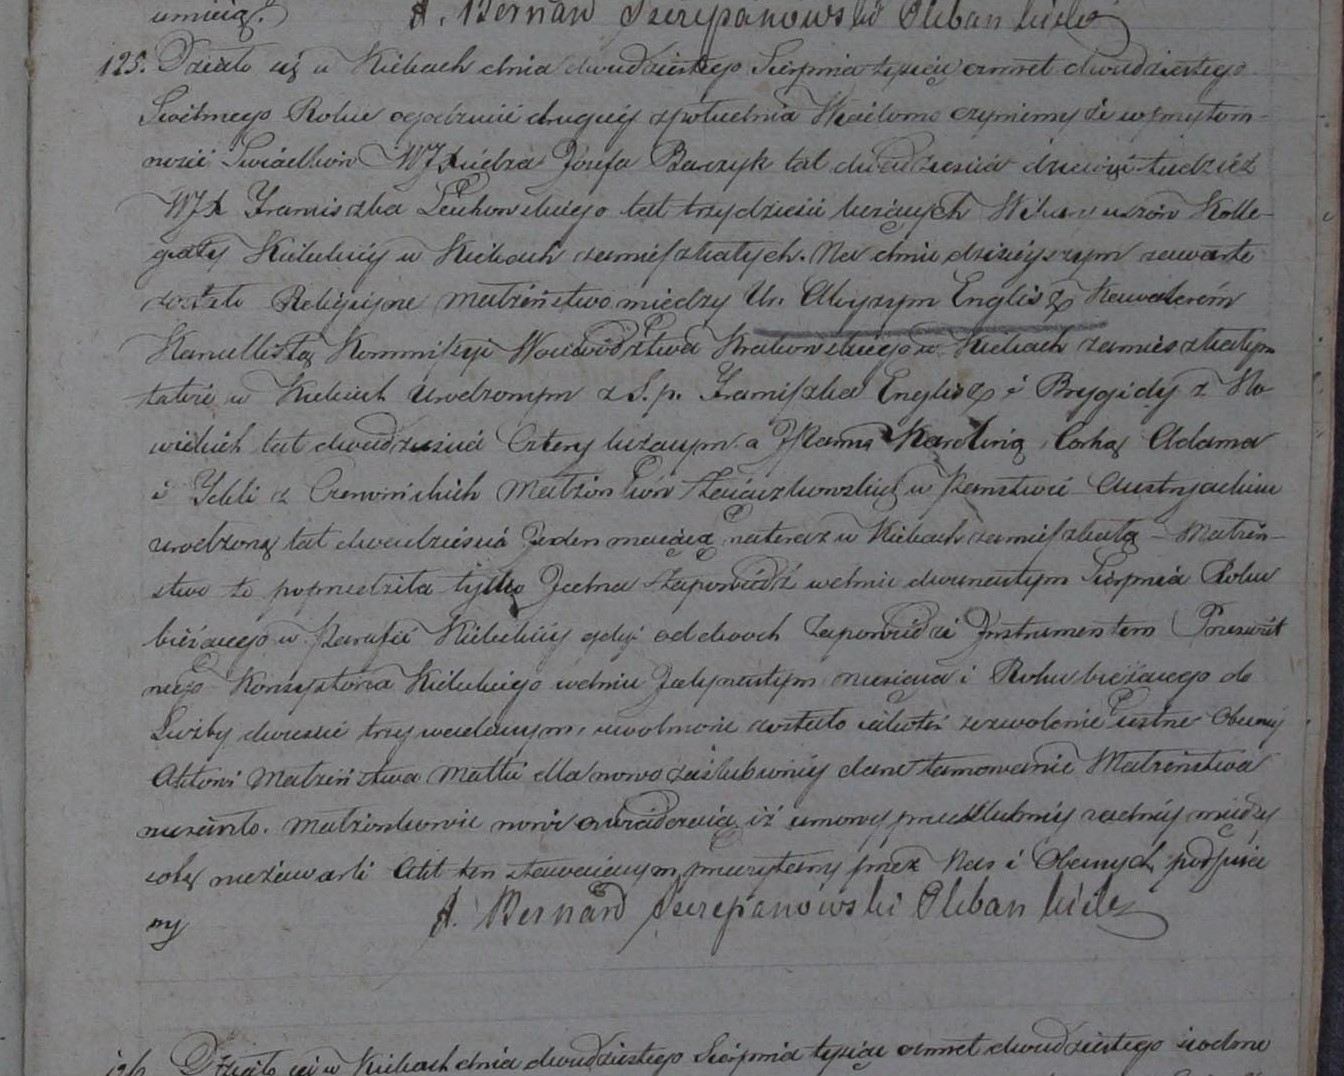 umieią.
X. Bernard Szczepanowski Pleban kielc
125. Działo się w Kielcach dnia dwudziestego Sierpnia tysiąc osmset dwudziestego
Siodmego Roku ogodzinie drugiey zpołudnia Wiadomo czyniemy że wprzytom-
nosci Swiadkow WJXiedza Jozefa Barczyk lat dwadziescia dziewięć tudzież
WJX Franciszka Lechowskiego lat trzydziesci liczących Wikaryuszow Kolle-
giaty Kieleckiey w Kielcach zamieszkałych. Na dniu dzisieyszym zawarte
zostało Religijne Małżeństwo między Ur. Aloyzym Englisz Kawalerem
Kancellistą Kommissyi Woiewodztwa Krakowskiego w Kielcach zamieszkałym
tutéi w Kielcach Urodzonym z S. p. Franciszka Englisz i Brygidy z No-
wickich lat dwadziescia Cztery liczącym a JPanną Karoliną Corką Adama
i Tekli z Czerwińskich Małżonkow w Panstwie Austryackim
urodzoną lat dwadziescia Jeden maiącą nateraz w Kielcach zamieszkałą – Małżeń-
stwo to poprzedziła tylko Jedna Zapowiedź wdniu dwunastym Sierpnia Roku
bieżącego w Parafii Kieleckiey gdyż oddwoch Zapowiedzi Jnstrumentem Przeswiet
nego Konsystorza Kieleckiego wdniu Jedynastym miesiąca i Roku bieżącego do
Liczby dwiescie trzy wydanym, uwolnione zostało zezwolenie ustne Obecney
Aktowi Małżeństwa Matki dla nowo zaślubioney dane tamowanie Małżeństwa
niezaszło. Małżonkowie nowi oswiadczaią iż umowy przedslubney żadney między
sobą niezawarli Akt ten stawaiącym przeczytany przez Nas i Obecnych podpisa
ny
X. Bernard Szczepanowski Pleban kielc
126. Działo się w Kielcach dnia dwudziestego Sierpnia tysiąc osmset dwudziestego siodme